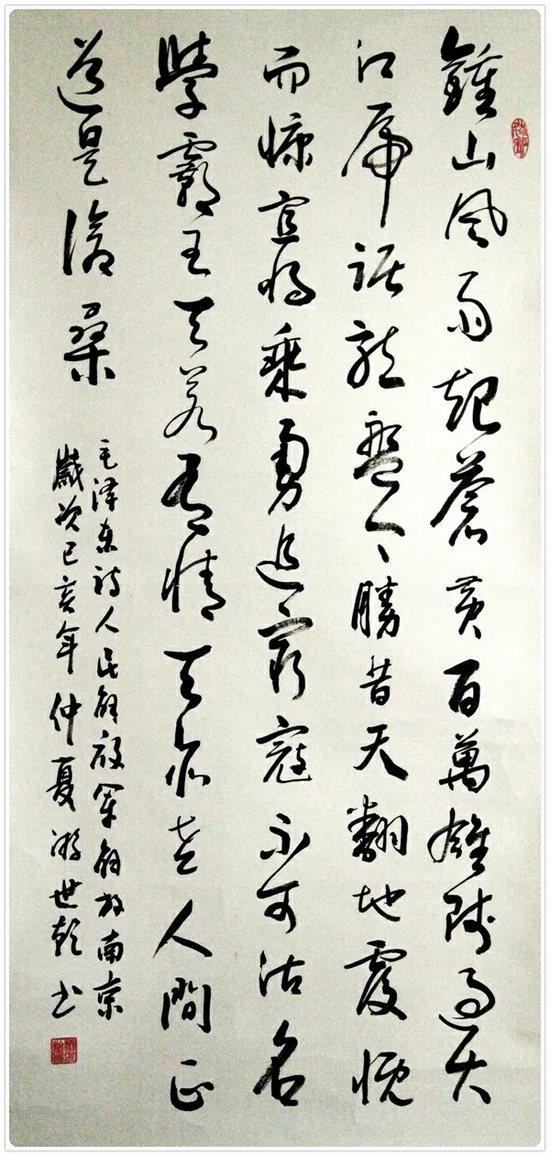 鍾山風雨起蒼黃百萬雄師過大
江虎踞龍盤今勝昔天翻地覆慨
而慷宜將乘勇追窮寇不可沽名
學霸王天若有情天亦老人間正
道是滄桑
毛澤東詩人民解放軍解放南京
歲次己亥年仲夏游世乾书